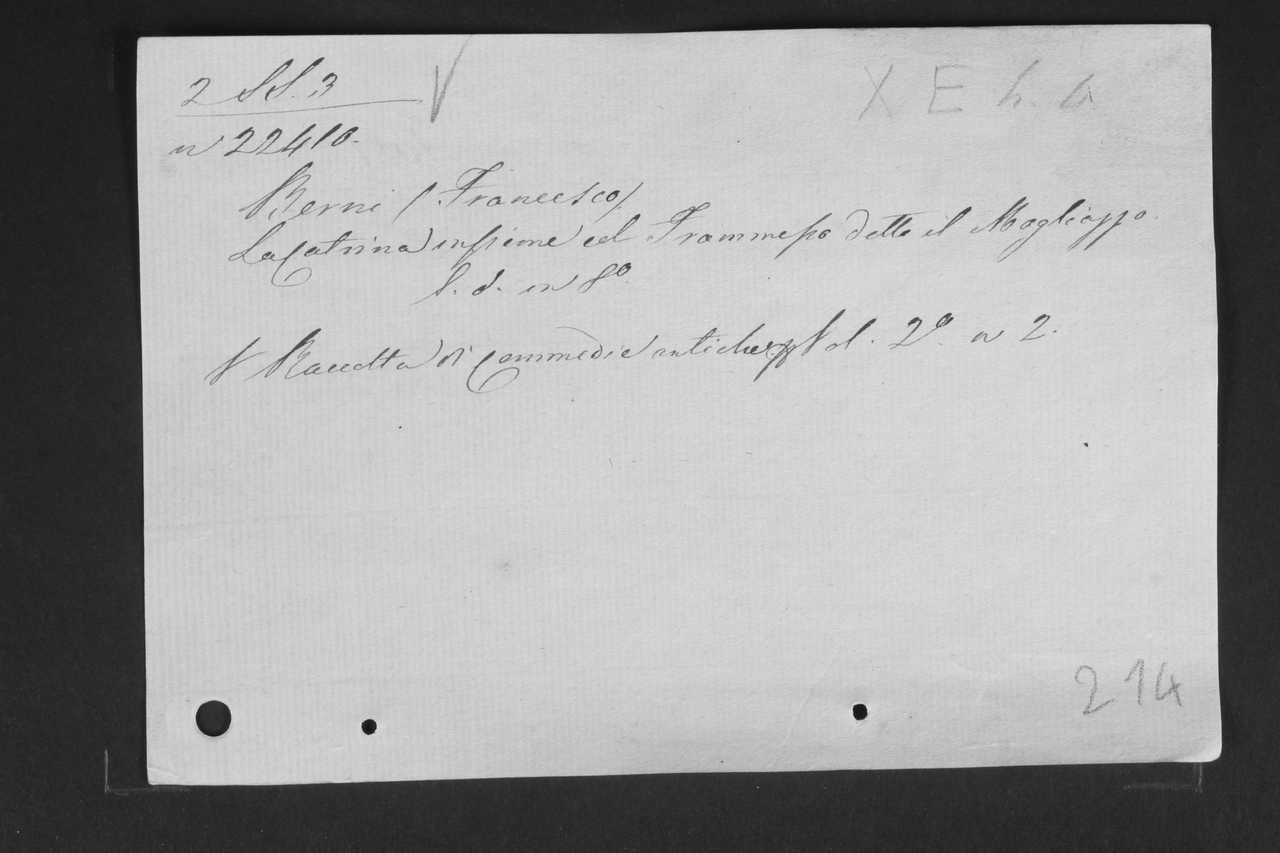 2 SS. 3
V
X E h. a
n 22410.
Berni (Francesco)
La Catrina insieme col Trammesso detto il Mogliazzo.
S. d. in 8º
V Raccolta di Commedie antiche Vol. 2º n 2.
214